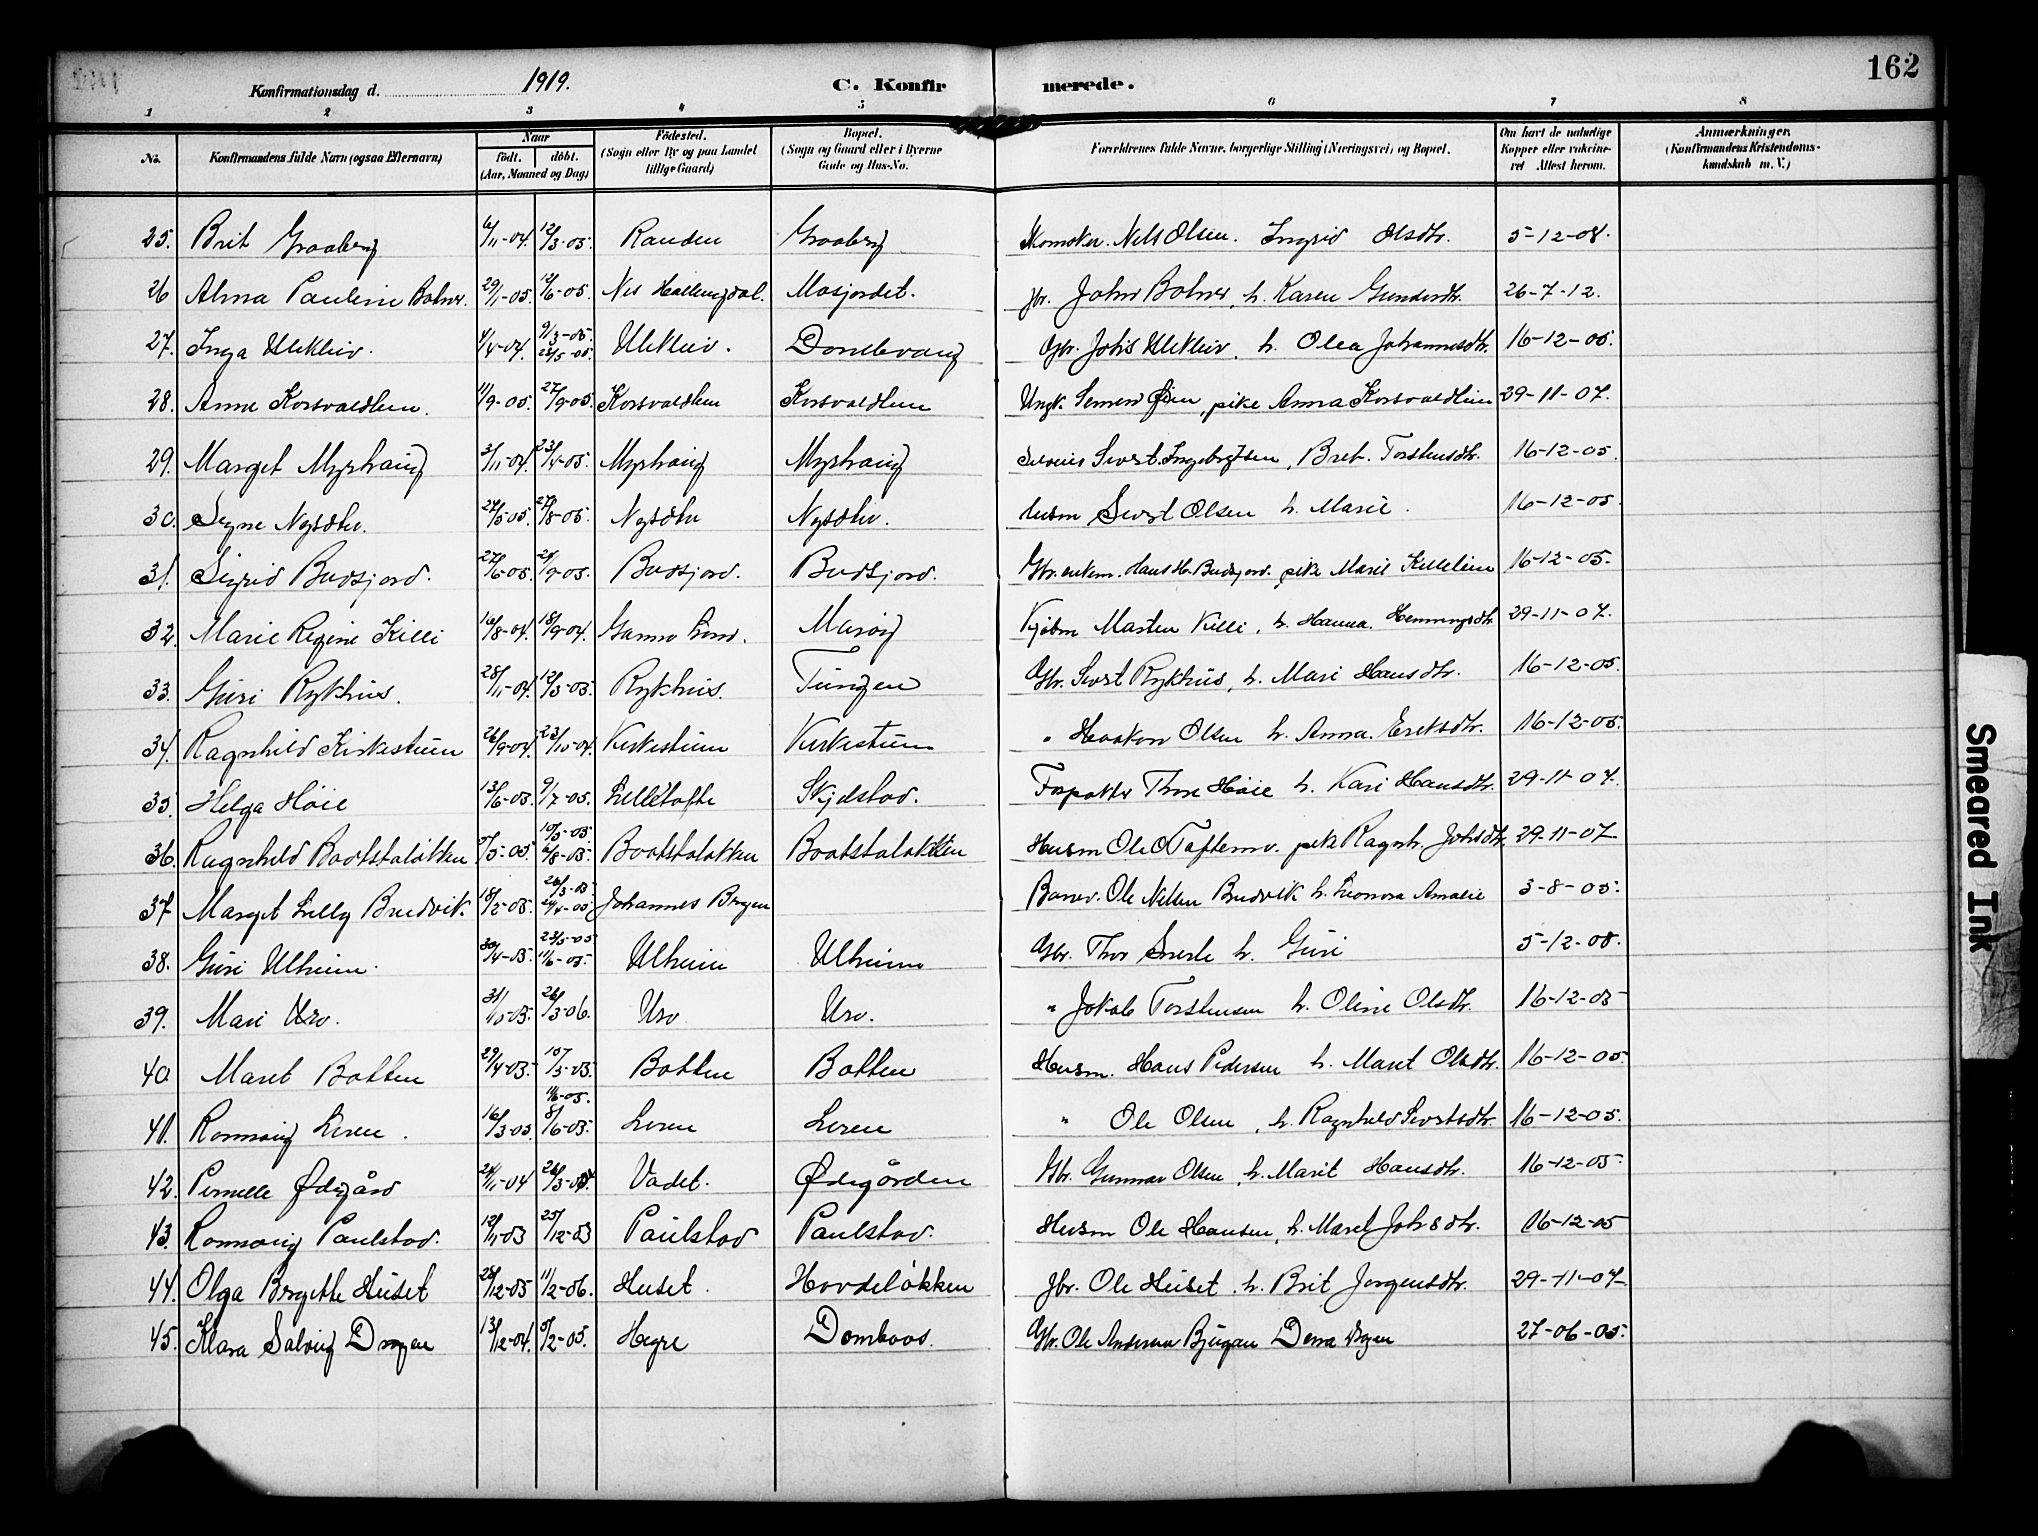 162
Konfirmationsdag d. 1919. C. Konfirmerede.
1 2 3 4 5 6 7 8
No. Konfirmandens fulde Navn (ogsaa Efternavn) Naar født. døbt. (Aar, Maaned og Dag) Fødested. (Sogn eller By og paa Landet tillige Gaard) Bopæl. (Sogn og Gaard eller i Byerne Gade og Hus-No. Forældrenes fulde Navne, borgerlige Stilling (Næringsvei) og Bopæl. Om havt de naturlige Kopper eller vaccineret Attest herom. Anmærkninger. (Konfirmandens Kristendomskundskab m. V.)
25. Brit Graaberg 6/11-04. 12/3-05. Randen Graaberg Nels Olsen. Ingrid Olsdtr. 5-12-08.
26 Alma Pauline Bolner. 29/1-05. 12/6-05. Nes Hallingdal. Mosjordet. John Bolner, h. Karen Gundersdtr. 26-7-12.
27. Inga Ulekleiv. 1/4-04. 9/3-05. 28/5-05. Ulekleiv. Gbr. Johs Ulekleiv, h. Olea Johannesdtr. 16-12-05.
28. Anne Korsvoldlien. 11/9-05. 27/9-05. Korsvoldlien Korsvoldlien Ungk. Øien, pike Anna Korsvoldlien 29-11-07.
29. Marget Myrhaug 3/11-04. 23/4-05. Myrhaug Myrhaug Sivert Ingebrigtsen, Brit Torstensdtr. 16-12-05.
30. Signe Nysæter. 24/5-05. 27/8-05. Nysæter Nysæter. Husm Sivert Olsen h. Marie. 16-12-05.
31. Sigrid Budsjord. 27/6-05. Budsjord. Budsjord. Gbr. enkem. Hans H. Budsjord. pike Marit Killelien 16-12-05.
32. Marie Regine Killi 16/8-04. 18/9-04. Kjøbm Morten Killi, h. Hanna Hemmingsdtr 29-11-07.
33. Guri Rykhus. 28/11-04. 12/3-05. Rykhus. Tungen Gbr. Sivert Rykhus, h. Mari Hansdtr. 16-12-05.
34. Ragnhild Kirkestuen 26/9-04 23/10-04. Kirkestuen Kirkestuen " Haakon Olsen h. Anna Eriksdtr. 16-12-05.
35. Helga Høie 13/6-05. 9/7-05. Lilletofte Skjelstad. Forpakter Thor Høie h. Kari Hansdtr. 29-11-07.
36. Ragnhild Baatstaløkken 5/5-05. 10/5-05 6/8-05. Baatstaløkken Baatstaløkken Husm Ole O Toftemo. pike Ragnh. Johsdtr. 29-11-07
37 Marget Lilly Bredvik. 18/2-05. 26/3-05. 24/4-05. Johannes Bergen Banev. Ole Nelsen Bredvik h. Leonora Amalie 3-8-05
38. Guri Ulheim. 30/4-05. 23/5-05 11/6-05. Ulheim Ulheim Gbr. Thor Snerle h. Guri 5-12-08.
39. Mari Urv. 31/10-05. 26/3-06. Urv Urv. " Jakob Torstensen h. Oline Olsdtr. 16-12-05
40 Maret Botten 29/4-05. 10/5-05. 11/6-05. Botten Botten Husm. Hans Pedersen h. Maret Olsdtr. 16-12-05
41. Ronnaug Loren. 16/3-05. 8/6-05. Loren Loren " Ole Olsen, h. Ragnhild Sivertsdtr. 16-12-05.
42. Pernille Ødegård 24/11-04 26/3-04. Vadet. Ødegården Gbr. Gunnar Olsen, h. Marit Hansdtr. 16-12-05
43. Ronnaug Paulstad. 12/11-03 25/12-03 Paulstad Paulstad. Husm Ole Hansen, h. Maret Johsdtr. 16-12-05
44. Olga Birgitte Huset 28/12-05 11/2-06. Huset. Hovdeløkken Gbr. Ole Huset, h. Brit Jørgensdtr. 29-11-07
45. Klara Solveig 13/12-04. 5/2-05. Hegre Dombaas. Gbr. Ole Andersen Bjugan 27-06-05.
Smeared Ink